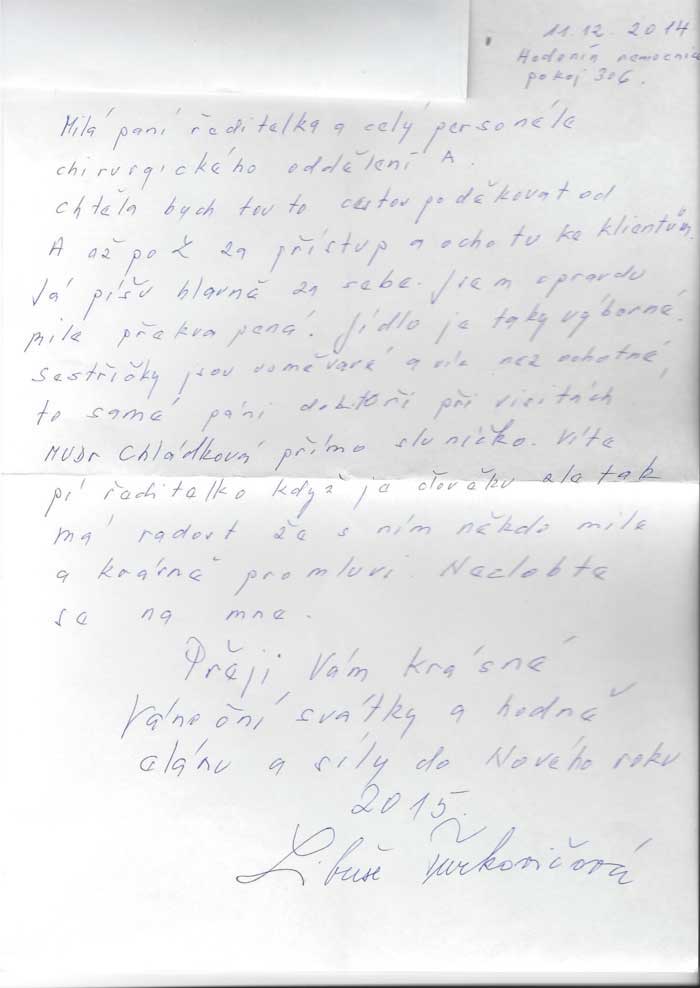 11.12.2014
Hodonín nemocnice
pokoj 306.
Milá paní ředitelka a celý personále
chirurgického oddělení A.
chtěla bych touto cestou poděkovat od
A až po Ž za přístup a ochotu ke klientům
Já píšu hlavně za sebe. Jsem opravdu
mile překvapená. Jídlo je taky výborné.
Sestřičky jsou usměvavé a víc než ochotné,
to samé páni doktoři při visitách
MUDr Chládková přímo sluníčko. Víte
pí ředitelko když je člověku zle tak
má radost že s ním někdo mile
a krásně promluví. Nezlobte
se na mne.
Přeji Vám krásné
Vánoční svátky a hodně
elánu a síly do Nového roku
2015.
Libuše